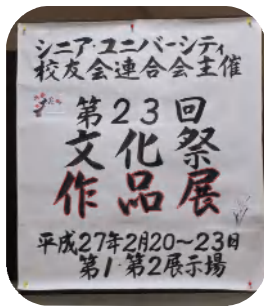 シニア・ユニバーシティ
校友会連合会主催
第23回
文化祭
作品展
平成27年2月20～23日
第1・第2展示場